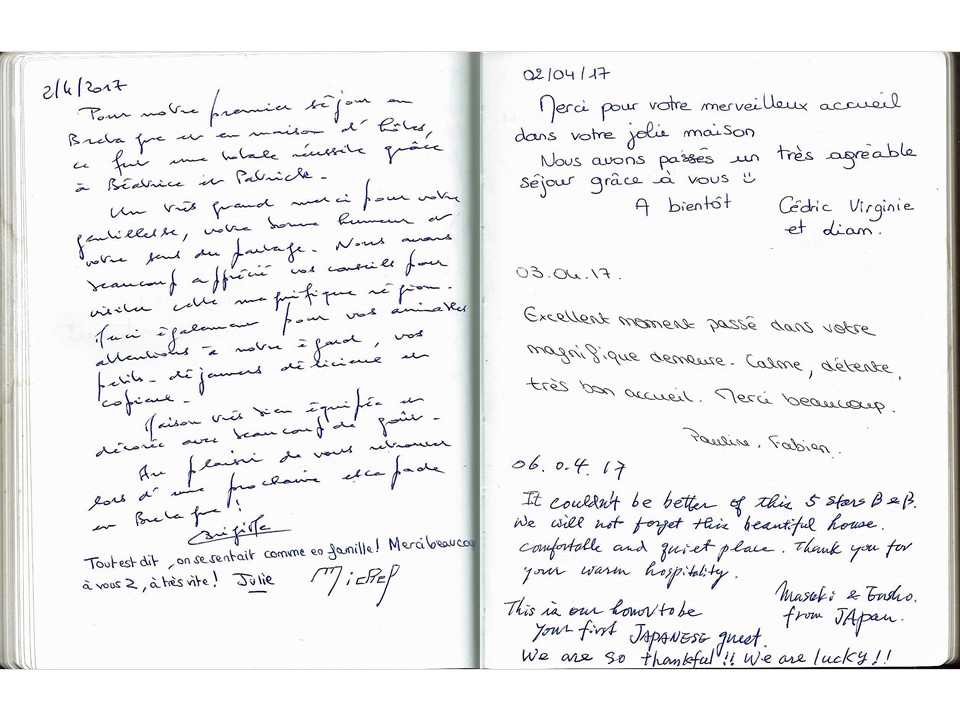 2/4/2017
Pour notre premier séjour en
Bretagne et en maison d'hôtes,
ce fut une totale réussite grâce
à Béatrice et Patrick.
Un très grand merci pour votre
gentillesse, votre bonne humeur et
votre sens du partage. Nous avons
beaucoup apprécié vos conseils pour
visiter cette magnifique région.
Merci également pour vos aimables
attentions à notre égard, vos
petits-déjeuners délicieux et
copieux.
Maison très bien équipée et
décorée avec beaucoup de goût.
Au plaisir de vous retrouver
lors d'une prochaine escapade
en Bretagne!
Brigitte
Tout est dit, on se sentait comme en famille! Merci beaucoup
à vous 2, à très vite! Julie
02/04/17
Merci pour votre merveilleux accueil
dans votre jolie maison
Nous avons passés un très agréable
séjour grâce à vous
A bientôt Cédric Virginie
et diam.
03.04.17.
Excellent moment passé dans votre
magnifique demeure. Calme, détente,
très bon accueil. Merci beaucoup.
Pauline. Fabien.
06.0.4.17
It couldn't be better of this 5 stars B & B.
We will not forget this beautiful house.
comfortable and quiet place. Thank you for
your warm hospitality.
Masaki &
from JApan.
This is our honor to be
your first JAPANESE guest.
We are so thankful!! We are lucky!!